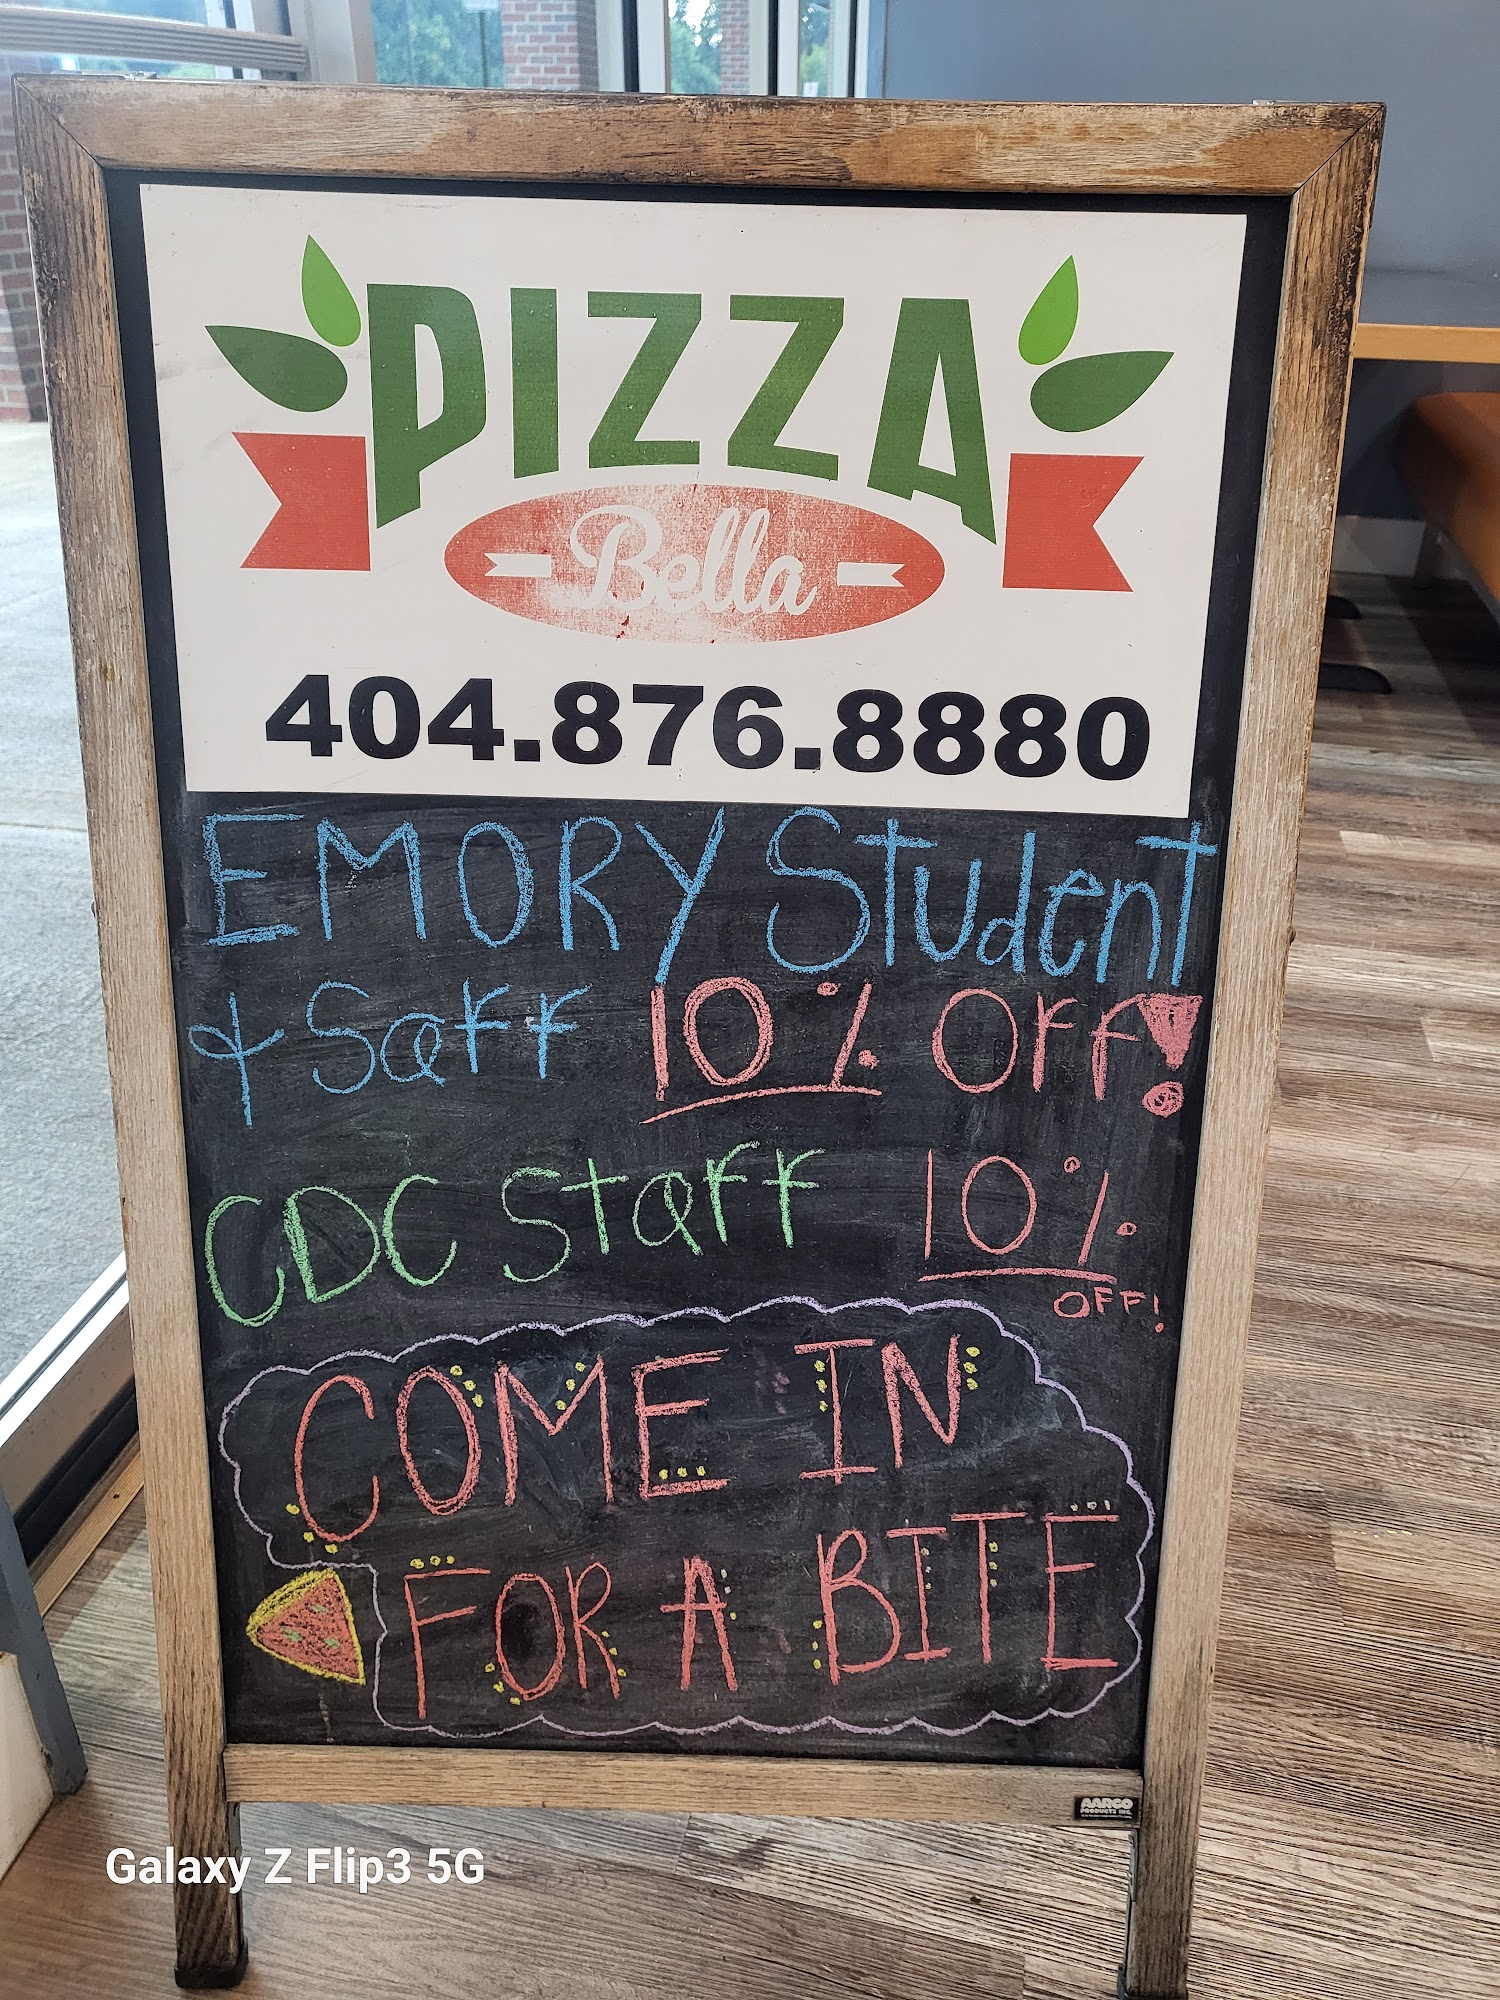 PIZZA
Bella
404.876.8880
EMORY Student
& Saff 10% OFF!
CDC Staff 10%
OFF!
COME IN
FOR A BITE
AARCO
PRODUCTS INC.
Galaxy Z Flip3 5G